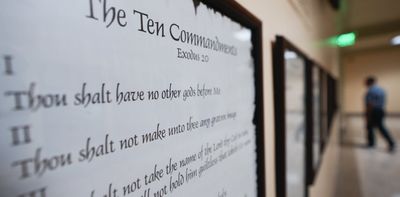 The Ten Commandments
Exodus 20
I
Thou shalt have no other gods before Me
II
Thou shalt not make unto thee any graven image
III
shalt not take the name of the Lord thy God in
not hold him guiltless that